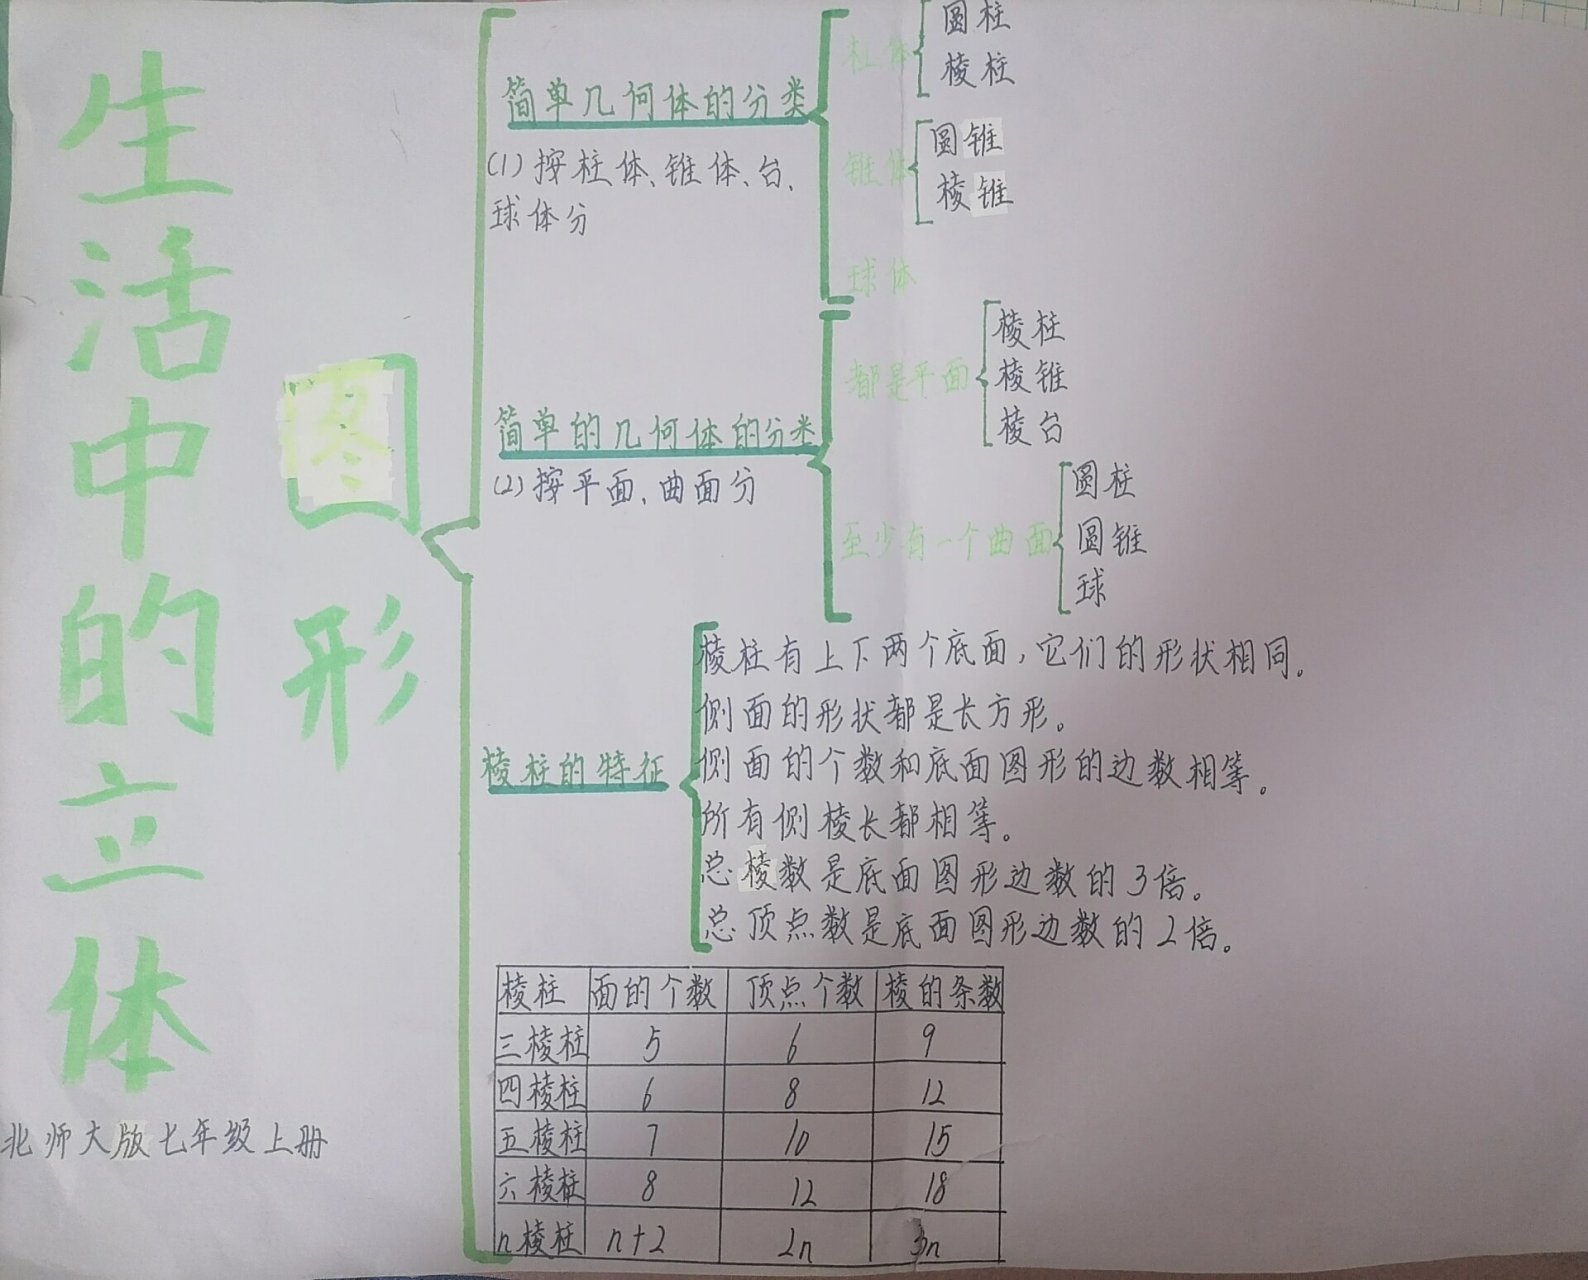 生活中的立体
图形
北师大版七年级上册
简单几何体的分类
(1)按柱体、锥体、台、
球体分
柱体
圆柱
棱柱
锥体
圆锥
棱锥
球体
简单的几何体的分类
(2)按平面、曲面分
都是平面
棱柱
棱锥
棱台
至少有一个曲面
圆柱
圆锥
球
棱柱的特征
棱柱有上下两个底面,它们的形状相同。
侧面的形状都是长方形。
侧面的个数和底面图形的边数相等。
所有侧棱长都相等。
总棱数是底面图形边数的3倍。
总顶点数是底面图形边数的2倍。
棱柱 面的个数 顶点个数 棱的条数
三棱柱 5 6 9
四棱柱 6 8 12
五棱柱 7 10 15
六棱柱 8 12 18
n棱柱 n+2 2n 3n